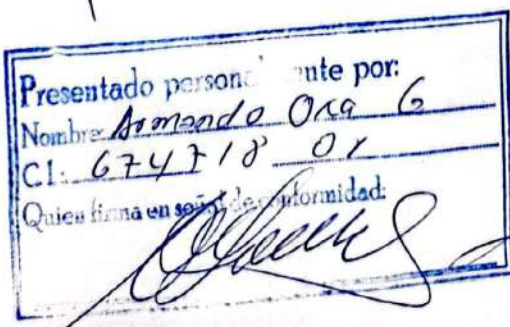 Presentado personalmente por:
Nombre: Armando Ora G
C.I.: 674718 Or
Quien firma en señal de conformidad: